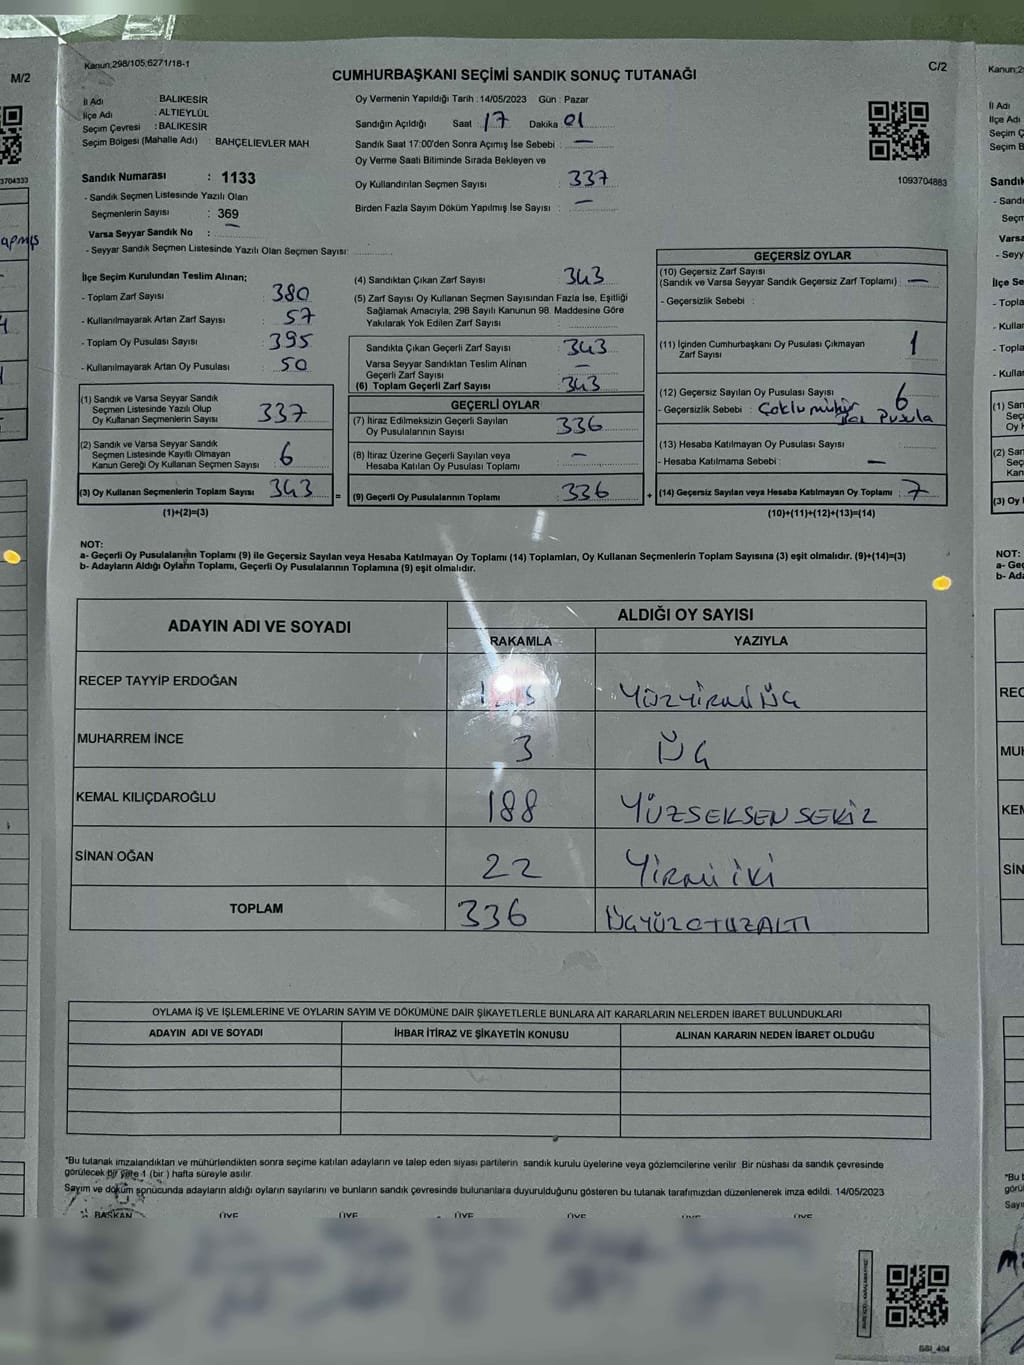 M/2
Kanun;298/105;6271/18-1
CUMHURBAŞKANI SEÇİMİ SANDIK SONUÇ TUTANAĞI
C/2
İl Adı : BALIKESİR
İlçe Adı : ALTIEYLÜL
Seçim Çevresi : BALIKESİR
Seçim Bölgesi (Mahalle Adı) BAHÇELİEVLER MAH
Sandık Numarası : 1133
- Sandık Seçmen Listesinde Yazılı Olan
Seçmenlerin Sayısı : 369
Varsa Seyyar Sandık No : —
- Seyyar Sandık Seçmen Listesinde Yazılı Olan Seçmen Sayısı:
Oy Vermenin Yapıldığı Tarih : 14/05/2023 Gün : Pazar
Sandığın Açıldığı Saat 17 Dakika 01
Sandık Saat 17:00'den Sonra Açımış İse Sebebi : —
Oy Verme Saati Bitiminde Sırada Bekleyen ve
Oy Kullandırılan Seçmen Sayısı : 337
Birden Fazla Sayım Döküm Yapılmış İse Sayısı : —
1093704883
İlçe Seçim Kurulundan Teslim Alınan;
- Toplam Zarf Sayısı : 380
- Kullanılmayarak Artan Zarf Sayısı : 57
- Toplam Oy Pusulası Sayısı : 395
- Kullanılmayarak Artan Oy Pusulası : 50
(1) Sandık ve Varsa Seyyar Sandık
Seçmen Listesinde Yazılı Olup
Oy Kullanan Seçmenlerin Sayısı : 337
(2) Sandık ve Varsa Seyyar Sandık
Seçmen Listesinde Kayıtlı Olmayan
Kanun Gereği Oy Kullanan Seçmen Sayısı : 6
(3) Oy Kullanan Seçmenlerin Toplam Sayısı : 343 =
(1)+(2)=(3)
(4) Sandıktan Çıkan Zarf Sayısı : 343
(5) Zarf Sayısı Oy Kullanan Seçmen Sayısından Fazla İse, Eşitliği
Sağlamak Amacıyla, 298 Sayılı Kanunun 98. Maddesine Göre
Yakılarak Yok Edilen Zarf Sayısı :
Sandıkta Çıkan Geçerli Zarf Sayısı : 343
Varsa Seyyar Sandıktan Teslim Alınan
Geçerli Zarf Sayısı : —
(6) Toplam Geçerli Zarf Sayısı : 343
GEÇERLİ OYLAR
(7) İtiraz Edilmeksizin Geçerli Sayılan
Oy Pusulalarının Sayısı : 336
(8) İtiraz Üzerine Geçerli Sayılan veya
Hesaba Katılan Oy Pusulası Toplamı : —
(9) Geçerli Oy Pusulalarının Toplamı : 336 +
GEÇERSİZ OYLAR
(10) Geçersiz Zarf Sayısı
(Sandık ve Varsa Seyyar Sandık Geçersiz Zarf Toplamı) : —
- Geçersizlik Sebebi :
(11) İçinden Cumhurbaşkanı Oy Pusulası Çıkmayan
Zarf Sayısı : 1
(12) Geçersiz Sayılan Oy Pusulası Sayısı : 6
- Geçersizlik Sebebi : Çoklu mühür Pusula
(13) Hesaba Katılmayan Oy Pusulası Sayısı :
- Hesaba Katılmama Sebebi : —
(14) Geçersiz Sayılan veya Hesaba Katılmayan Oy Toplamı : 7
(10)+(11)+(12)+(13)=(14)
NOT:
a- Geçerli Oy Pusulalarının Toplamı (9) ile Geçersiz Sayılan veya Hesaba Katılmayan Oy Toplamı (14) Toplamları, Oy Kullanan Seçmenlerin Toplam Sayısına (3) eşit olmalıdır. (9)+(14)=(3)
b- Adayların Aldığı Oyların Toplamı, Geçerli Oy Pusulalarının Toplamına (9) eşit olmalıdır.
ADAYIN ADI VE SOYADI
ALDIĞI OY SAYISI
RAKAMLA YAZIYLA
RECEP TAYYİP ERDOĞAN YÜZYİRMİ ÜÇ
MUHARREM İNCE 3 ÜÇ
KEMAL KILIÇDAROĞLU 188 YÜZSEKSEN SEKİZ
SİNAN OĞAN 22 YİRMİ İKİ
TOPLAM 336 ÜÇYÜZOTUZALTI
OYLAMA İŞ VE İŞLEMLERİNE VE OYLARIN SAYIM VE DÖKÜMÜNE DAİR ŞİKAYETLERLE BUNLARA AİT KARARLARIN NELERDEN İBARET BULUNDUKLARI
ADAYIN ADI VE SOYADI İHBAR İTİRAZ VE ŞİKAYETİN KONUSU ALINAN KARARIN NEDEN İBARET OLDUĞU
*Bu tutanak imzalandıktan ve mühürlendikten sonra seçime katılan adayların ve talep eden siyasi partilerin sandık kurulu üyelerine veya gözlemcilerine verilir. Bir nüshası da sandık çevresinde
görülecek bir yere 1 (bir) hafta süreyle asılır.
Sayım ve döküm sonucunda adayların aldığı oyların sayılarını ve bunların sandık çevresinde bulunanlara duyurulduğunu gösteren bu tutanak tarafımızdan düzenlenerek imza edildi. 14/05/2023
BAŞKAN ÜYE ÜYE ÜYE ÜYE ÜYE ÜYE